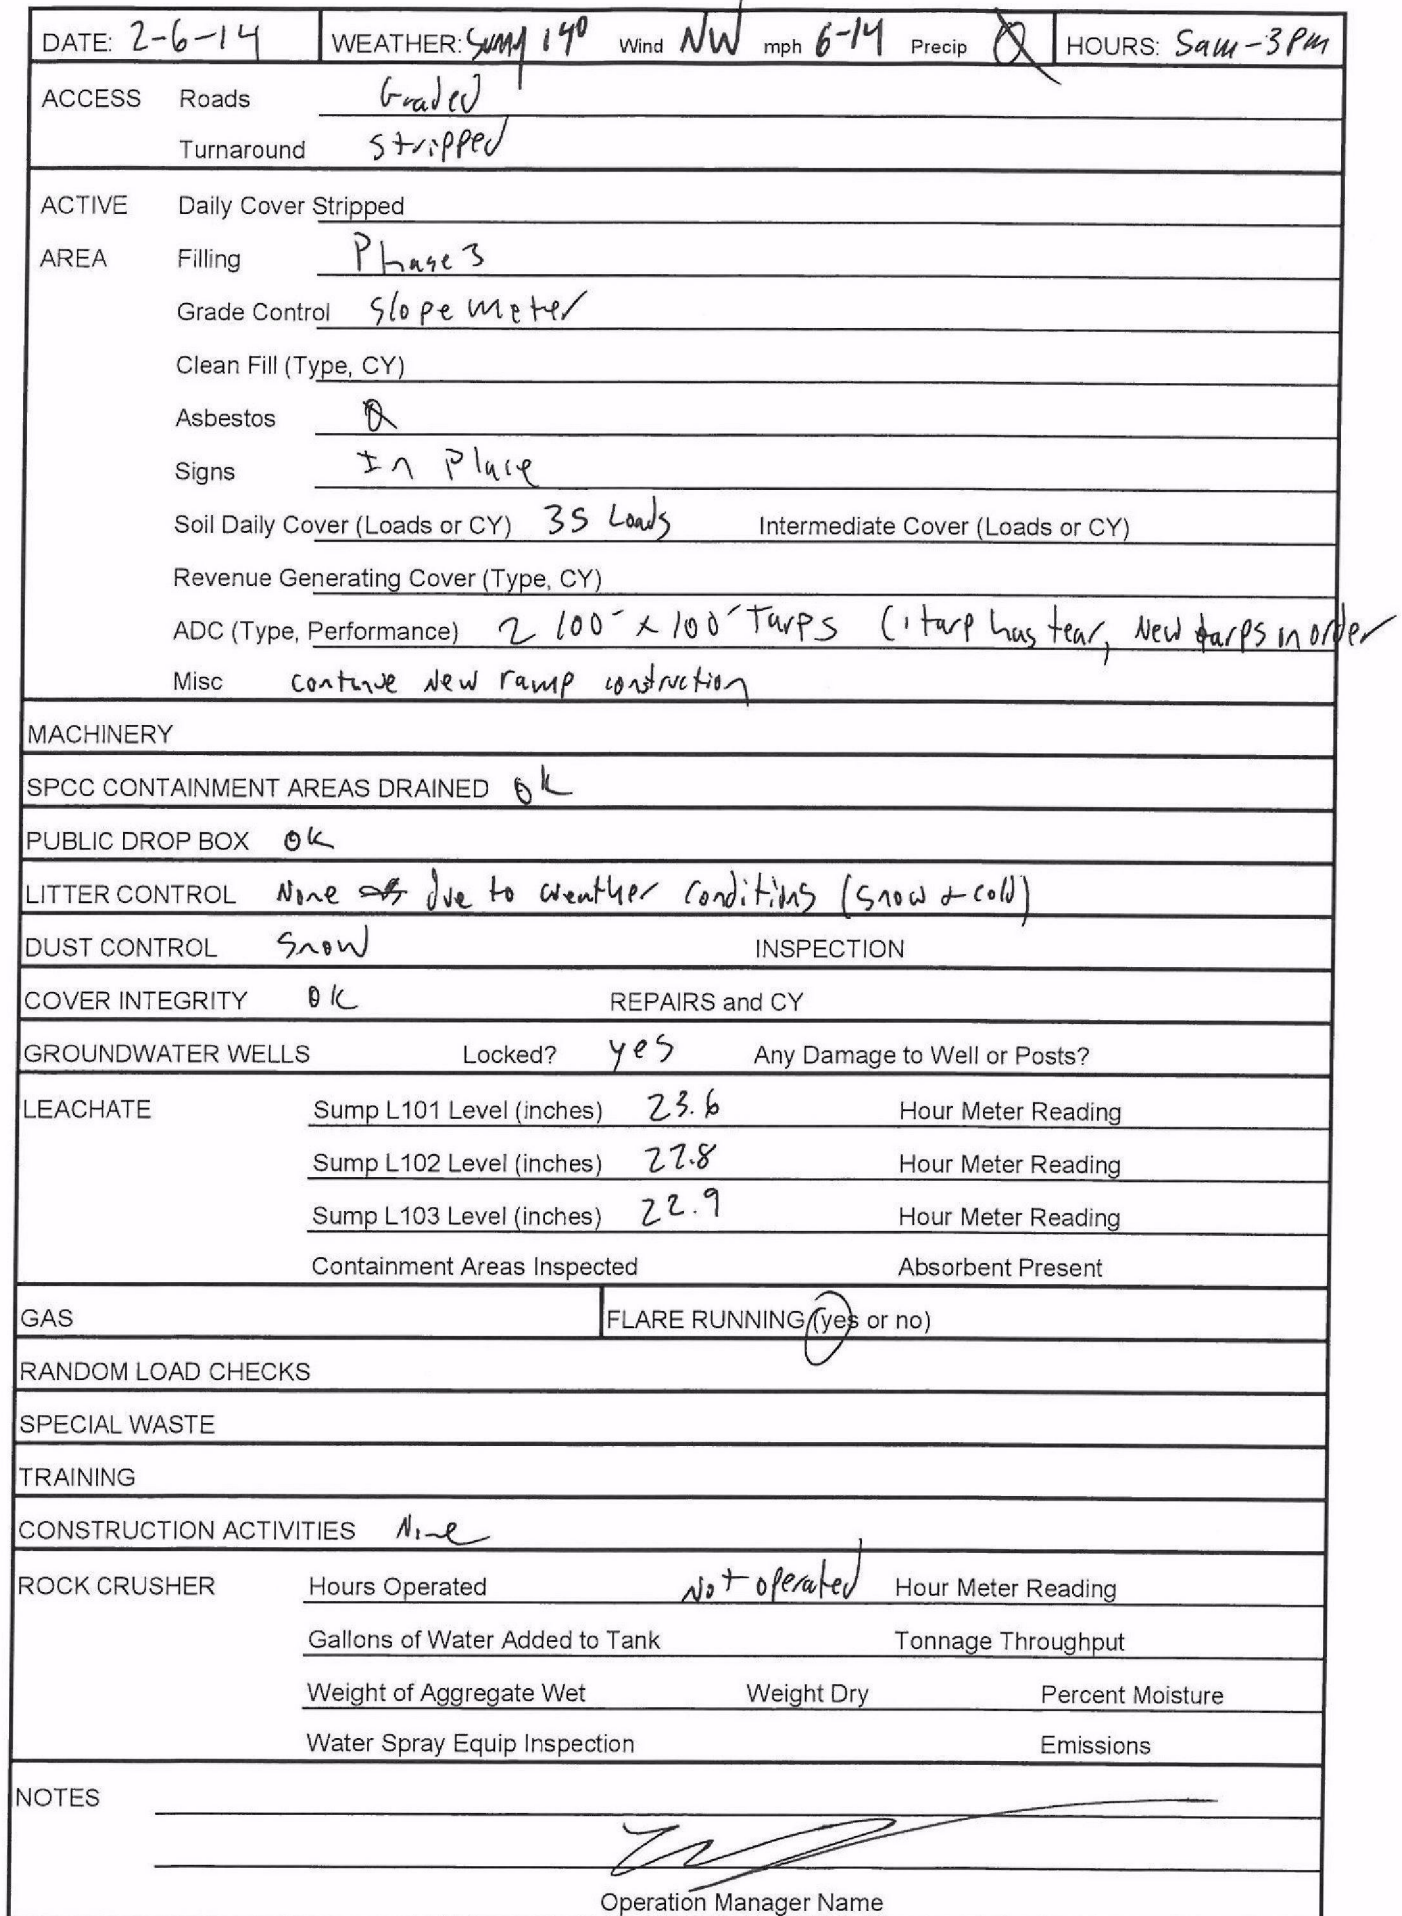 DATE: 2-6-14 WEATHER: Sunny 14° Wind NW mph 6-14 Precip 0 HOURS: 5am-3pm
ACCESS Roads Graded
Turnaround stripped
ACTIVE Daily Cover Stripped
AREA Filling Phase 3
Grade Control Slope meter
Clean Fill (Type, CY)
Asbestos 0
Signs In Place
Soil Daily Cover (Loads or CY) 35 Loads Intermediate Cover (Loads or CY)
Revenue Generating Cover (Type, CY)
ADC (Type, Performance) 2 100' x 100' Tarps (1 tarp has tear, New tarps in order
Misc continue New ramp construction
MACHINERY
SPCC CONTAINMENT AREAS DRAINED OK
PUBLIC DROP BOX OK
LITTER CONTROL None due to weather conditions (snow & cold)
DUST CONTROL Snow INSPECTION
COVER INTEGRITY OK REPAIRS and CY
GROUNDWATER WELLS Locked? yes Any Damage to Well or Posts?
LEACHATE Sump L101 Level (inches) 23.6 Hour Meter Reading
Sump L102 Level (inches) Hour Meter Reading
Sump L103 Level (inches) 22.9 Hour Meter Reading
Containment Areas Inspected Absorbent Present
GAS FLARE RUNNING (yes or no)
RANDOM LOAD CHECKS
SPECIAL WASTE
TRAINING
CONSTRUCTION ACTIVITIES None
ROCK CRUSHER Hours Operated Not operated Hour Meter Reading
Gallons of Water Added to Tank Tonnage Throughput
Weight of Aggregate Wet Weight Dry Percent Moisture
Water Spray Equip Inspection Emissions
NOTES
Operation Manager Name